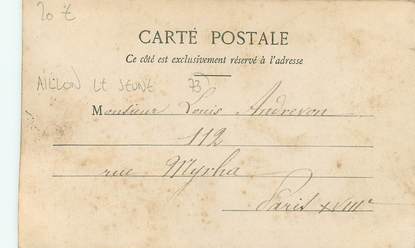 20 €
CARTE POSTALE
Ce côté est exclusivement réservé à l'adresse
AILLON LE JEUNE 73
Monsieur Louis Andrevon
112
rue Myrha
Paris XVIIIe